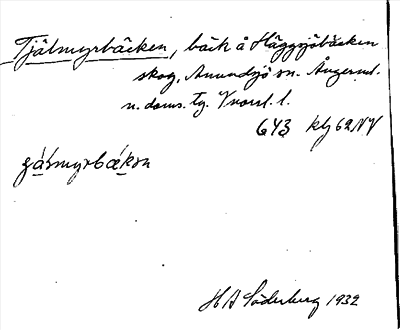 Tjälmyrbäcken, bäck å Häggsjöbäcken
skog, Anundsjö sn. Ångerml.
n. doms. tg. Vnorrl. l.
643 kbg 62 NV
gálmyrbækən
H A Söderberg 1932